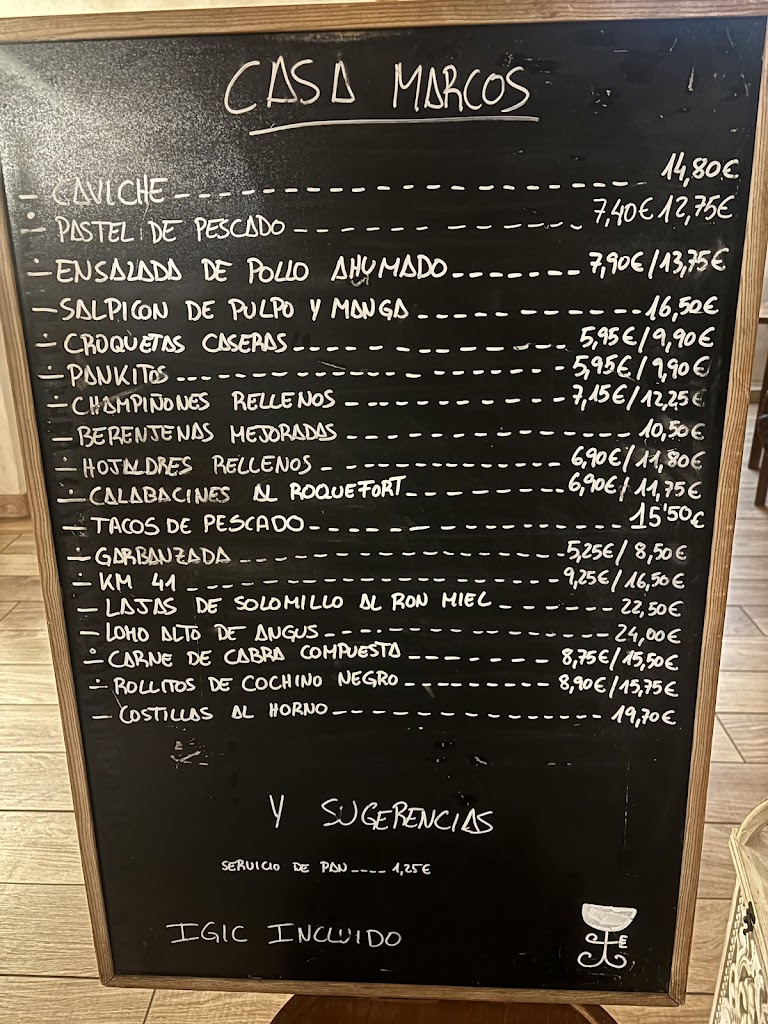 CASA MARCOS
- CAVICHE ------------------ 14,80€
- PASTEL DE PESCADO ------------ 7,40€ 12,75€
- ENSALADA DE POLLO AHUMADO ------- 7,90€/13,75€
- SALPICON DE PULPO Y MANGA ------------ 16,50€
- CROQUETAS CASERAS ------------ 5,95€/9,90€
- PANKITOS ------------------ 5,95€/9,90€
- CHAMPIÑONES RELLENOS ------------ 7,15€/12,25€
- BERENJENAS MEJORADAS --------------- 10,50€
- HOJALDRES RELLENOS ------------ 6,90€/11,80€
- CALABACINES AL ROQUEFORT ---------- 6,90€/11,75€
- TACOS DE PESCADO ----------------- 15'50€
- GARBANZADA ------------------ 5,25€/8,50€
- KM 41 -------------------- 9,25€/16,50€
- LAJAS DE SOLOMILLO AL RON MIEL ------- 22,50€
- LOMO ALTO DE ANGUS --------------- 24,00€
- CARNE DE CABRA COMPUESTA -------- 8,75€/15,50€
- ROLLITOS DE COCHINO NEGRO -------- 8,90€/15,75€
- COSTILLAS AL HORNO --------------- 19,70€
Y SUGERENCIAS
SERVICIO DE PAN ---- 1,25€
IGIC INCLUIDO